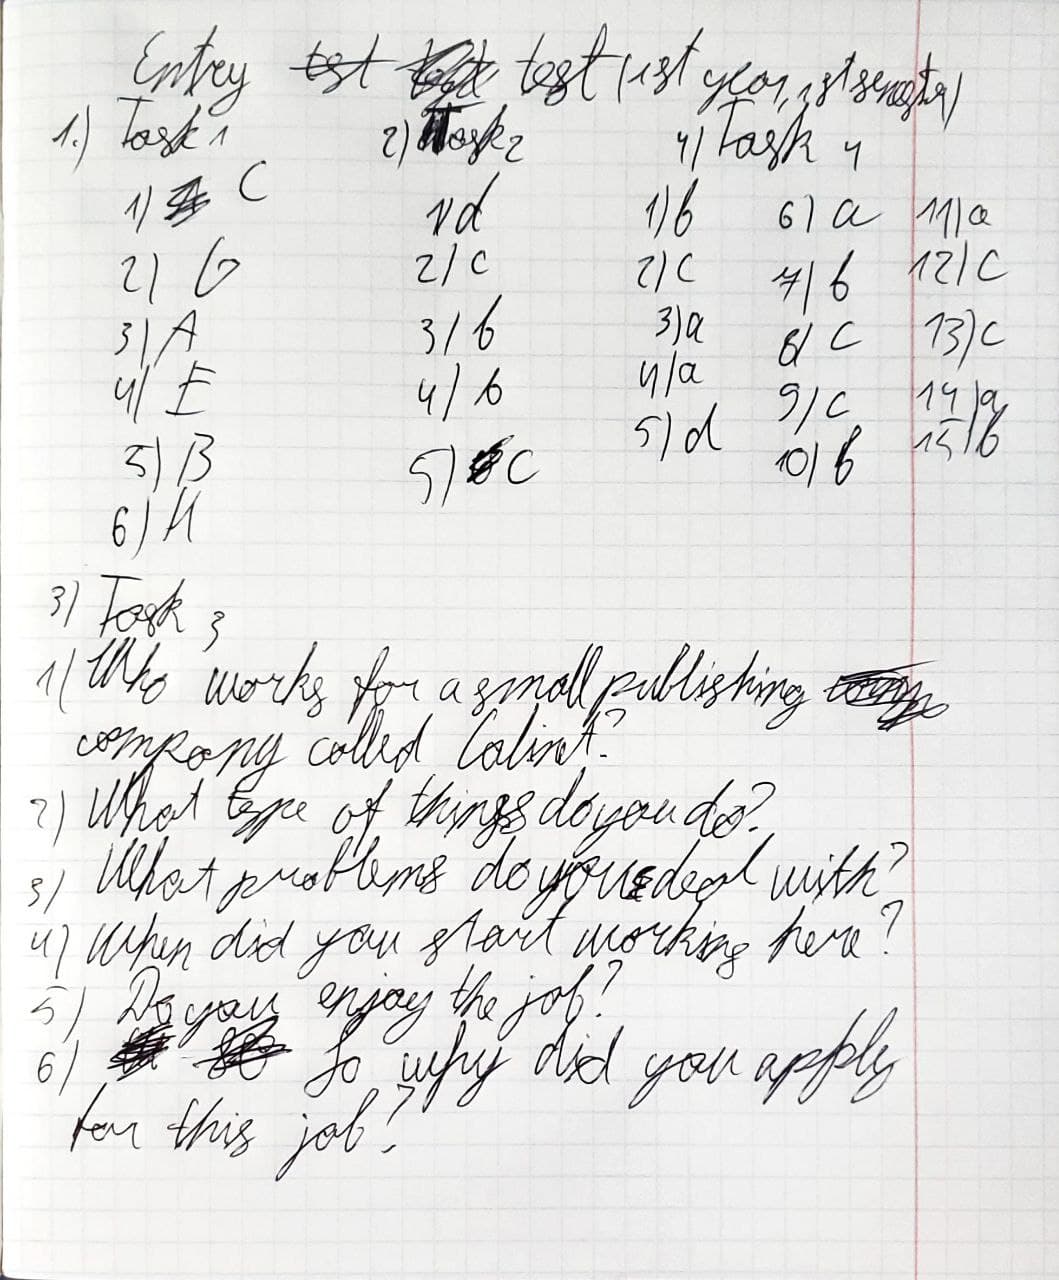 Entry test test (1st year, 1st semester)
1.) Task 1
1) C
2) G
3) A
4) E
5) B
6) H
2) Task 2
1) d
2) c
3) b
4) b
5) c
4) Task 4
1) b
2) c
3) a
4) a
5) d
6) a
7) b
8) c
9) c
10) b
11) a
12) c
13) c
14) a
15) b
3) Task 3
1) Who works for a small publishing
company called Calinet?
2) What type of things do you do?
3) What problems do you deal with?
4) When did you start working here?
5) Do you enjoy the job?
6) So why did you apply
for this job?